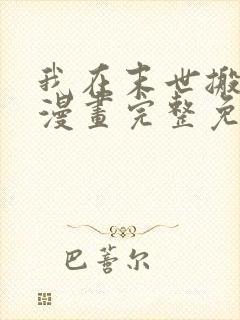 我在末世搬
漫畫完整免
巴萫尔